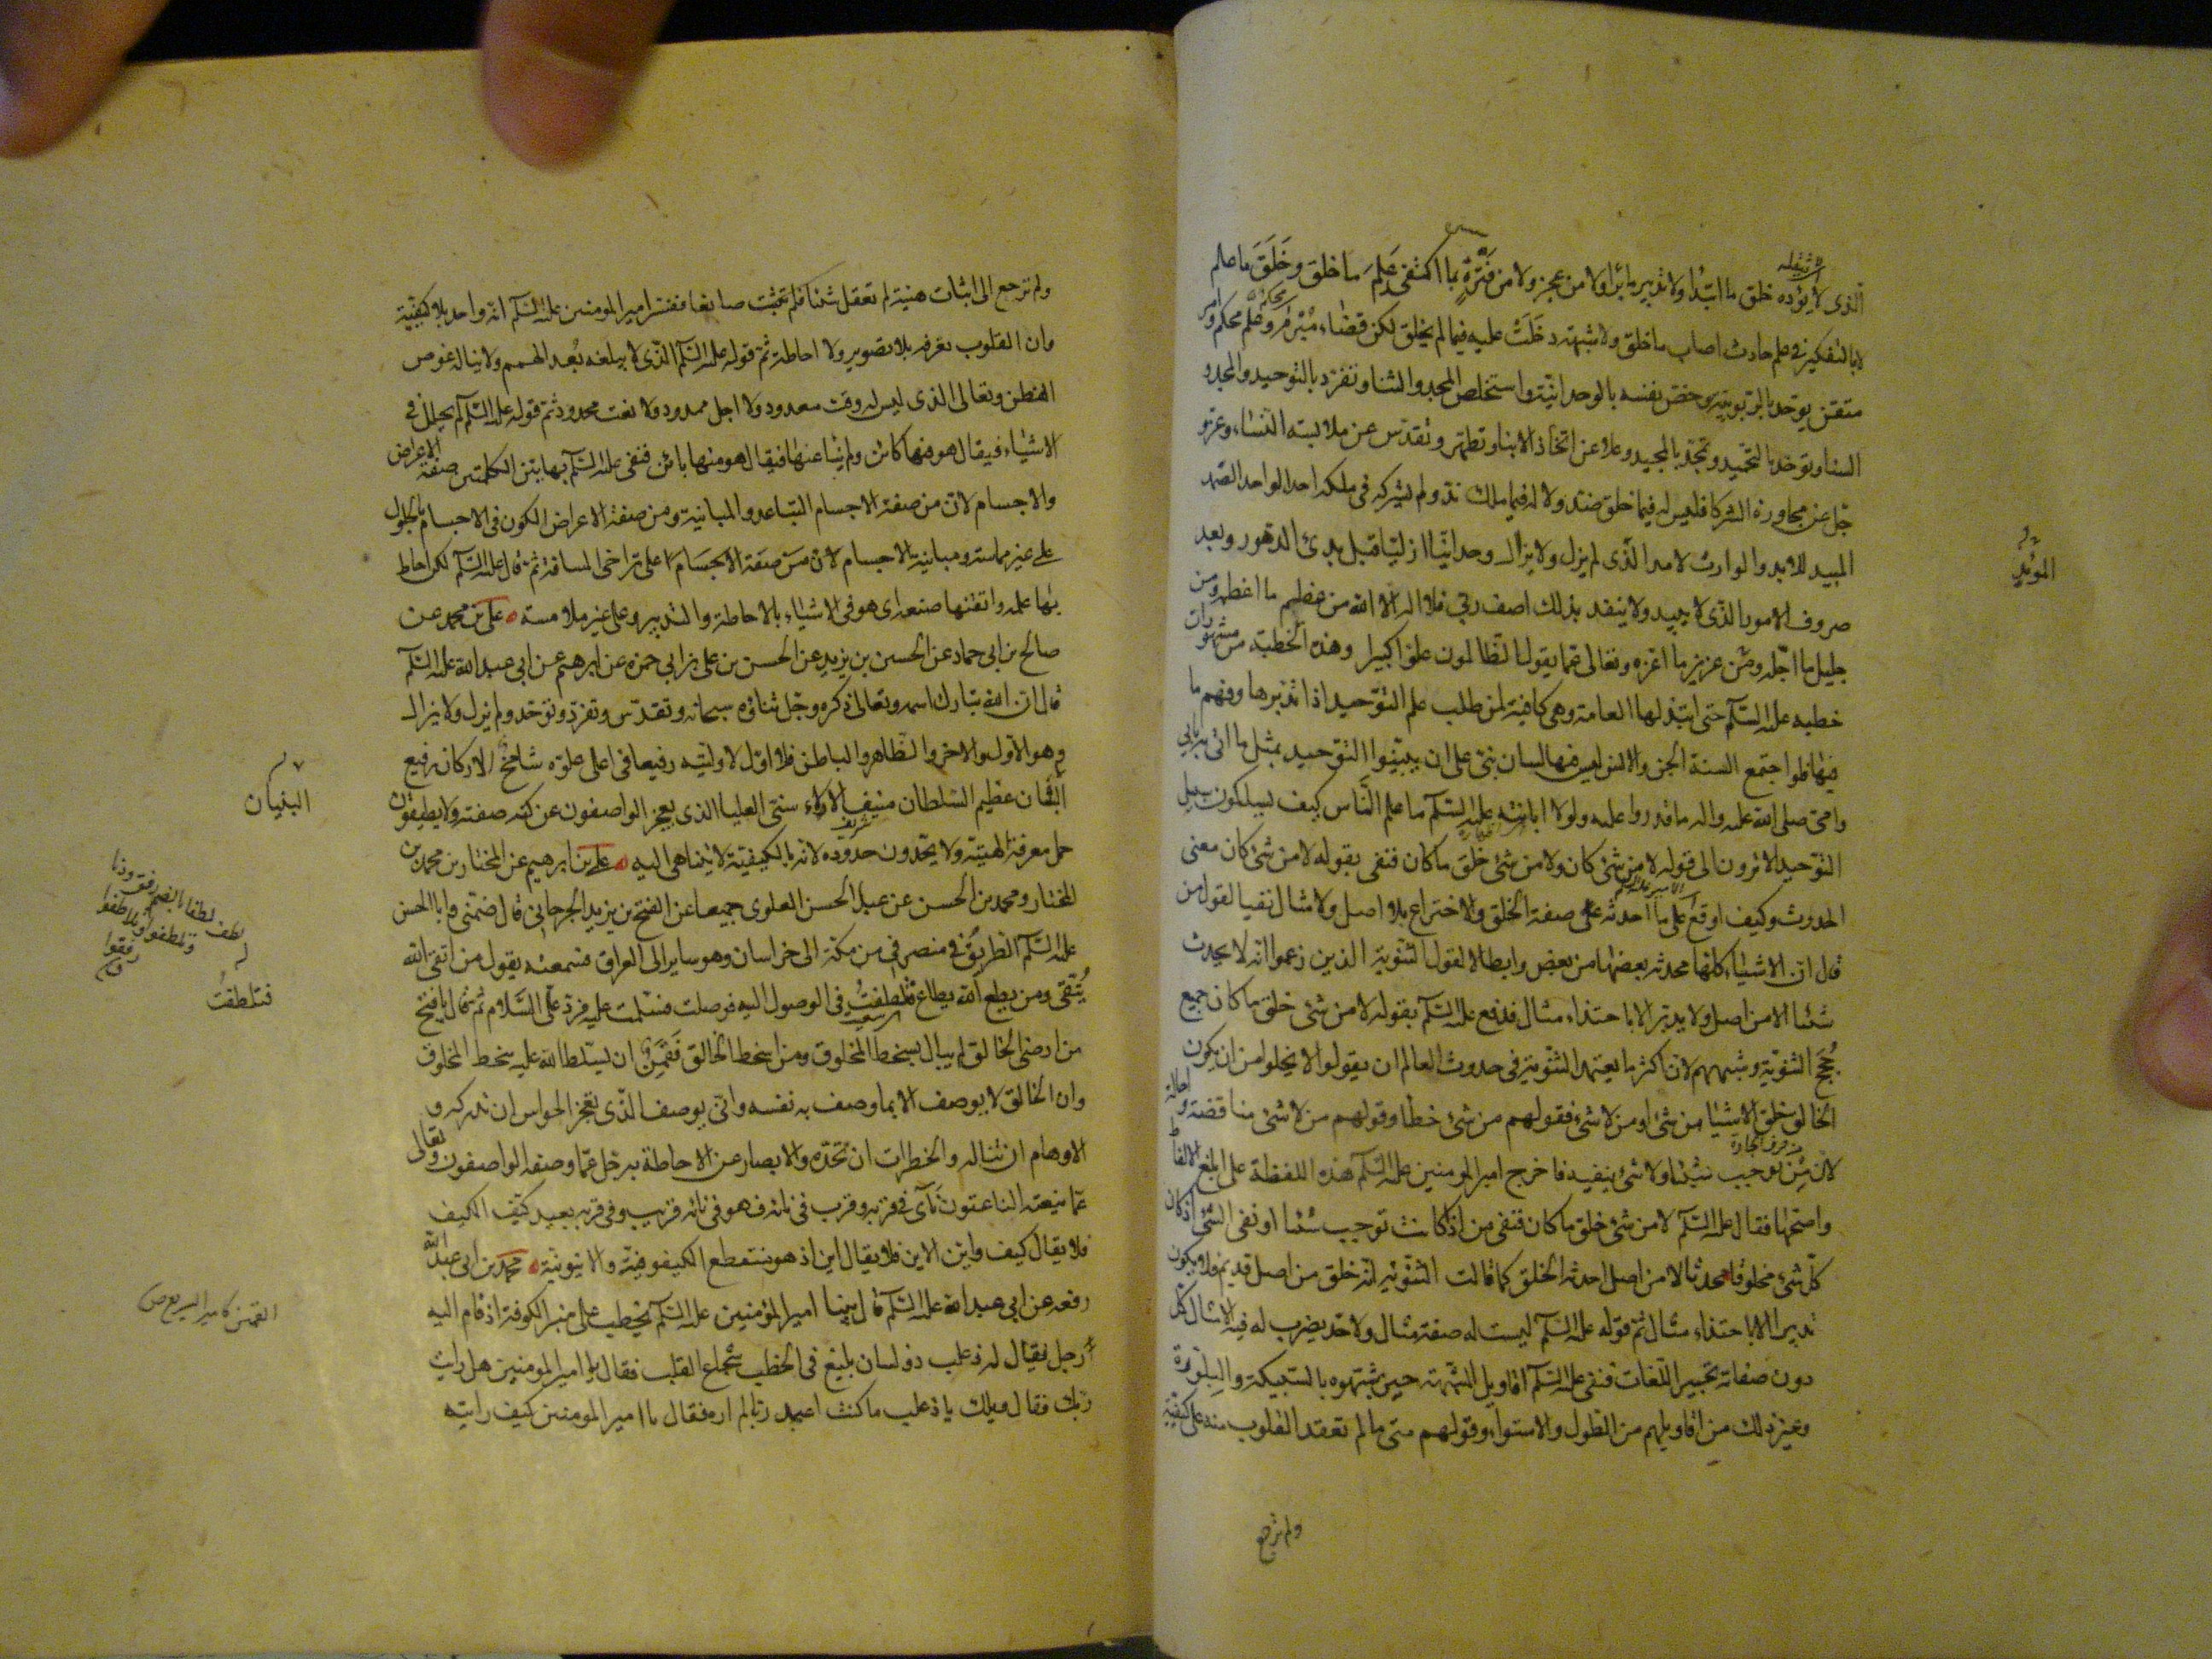 الذى لا يؤده خلق ما ابتدا ولا تدبير ما برا ولا من عجز ولا من فترة بما اكتفى علم ما خلق وخلق ما علم
لا يثقله
لا بالتفكير فى علم حادث اصاب ما خلق ولا شبهة دخلت عليه فيما لم يخلق لكن قضاء مبرم وعلم محكم وامر
متقن توحد بالربوبية وخص نفسه بالوحدانية واستخلص المجد والثنا وتفرد بالتوحيد والمجد و
السنا وتوحد بالتحميد وتمجد بالتمجيد وعلا عن اتخاذ الابناء وتطهر وتقدس عن ملامسة النساء وعز و
جل عن مجاورة الشركا فليس له فيما خلق ضد ولا له فيما ملك ند ولم يشركه فى ملكه احد الواحد الصمد
المبيد للابد والوارث للامد الذى لم يزل ولا يزال وحدانيا ازليا قبل بدئ الدهور وبعد
المؤبد
صروف الامور الذى لا يبيد ولا ينفد بذلك اصف ربى فلا اله الا الله من عظيم ما اعظمه ومن
جليل ما اجله ومن عزيز ما اعزه وتعالى عما يقول الظالمون علوا كبيرا وهذه الخطبة من مشهورات
خطبه عليه السلم حتى ابتذلها العامة وهى كافية لمن طلب علم التوحيد اذا تدبرها وفهم ما
فيها فلو اجتمع السنة الجن والانس ليس فيها لسان نبى على ان يبينوا التوحيد بمثل ما اتى به بابى
وامى صلى الله عليه واله ما قدروا عليه ولولا ابانته عليه السلم ما علم الناس كيف يسلكون سبيل
التوحيد الا ترون الى قوله لا من شئ كان ولا من شئ خلق ما كان فنفى بقوله لا من شئ كان معنى
الحدوث وكيف اوقع على ما احدثه على صفة الخلق والاختراع بلا اصل ولا مثال نفيا لقول من
قال ان الاشياء كلها محدثة بعضها من بعض وابطالا لقول الثنوية الذين زعموا انه لا يحدث
شئا الا من اصل ولا يدبر الا باحتذاء مثال فدفع عليه السلم بقوله لا من شئ خلق ما كان جميع
حجج الثنوية وشبههم لان اكثر ما يعتمد الثنوية فى حدوث العالم ان يقولوا لا يخلو من ان يكون
الخالق خلق الاشيا من شئ او من لا شئ فقولهم من شئ خطا وقولهم من لا شئ مناقضة واحالة
لان من توجب شيئا ولا شئ ينفيه فاخرج امير المومنين عليه السلم هذه اللفظة على ابلغ الالفاظ
واصحها فقال عليه السلم لا من شئ خلق ما كان فنفى من اذ كانت توجب شئا او نفى الشئ اذ كان
كل شئ مخلوقا محدثا لا من اصل احدثه الخلق كما قالت الثنوية انه خلق من اصل قديم فلا يكون
تدبير الا باحتذاء مثال ثم قوله عليه السلم ليست له صفة تنال ولا حد يضرب له فيه الامثال كل
دون صفاته تحبير اللغات فنفى عليه السلم اقاويل المشبهة حين شبهوه بالسبيكة والبلورة
وغير ذلك من اقاويلهم من الطول والاستواء وقولهم متى ما لم تعقد القلوب منه على كيفية
ولم ترجع
ولم ترجع الى اثبات هيئة لم تعقل شئا فلم تثبت صانعا ففسر امير المومنين عليه السلم انه واحد بلا كيفية
وان القلوب تعرفه بلا تصوير ولا احاطة ثم قوله عليه السلم الذى لا يبلغه بعد الهمم ولا يناله غوص
الفطن وتعالى الذى ليس له وقت معدود ولا اجل ممدود ولا نعت محدود ثم قوله عليه السلم لم يحلل فى
الاشياء فيقال هو فيها كائن ولم ينا عنها فيقال هو منها بائن فنفى عليه السلم بهاتين الكلمتين صفة الاعراض
والاجسام لان من صفة الاجسام التباعد والمباينة ومن صفة الاعراض الكون فى الاجسام بالحلول
على غير مماسة ومباينة الاجسام على تراخى المسافة ثم قال عليه السلم لكن احاط
بها علمه واتقنها صنعه اى هو فى الاشياء بالاحاطة والتدبير وعلى غير ملامسة على بن محمد عن
صالح بن ابى حماد عن الحسين بن يزيد عن الحسن بن على بن ابى حمزه عن ابرهيم عن ابى عبد الله عليه السلم
قال ان الله تبارك اسمه وتعالى ذكره وجل ثناؤه سبحانه وتقدس وتفرد وتوحد ولم يزل ولا يزال
وهو الاول والاخر والظاهر والباطن فلا اول لاوليته رفيعا فى اعلى علوه شامخ الاركان رفيع
البنيان
البنيان عظيم السلطان منيف الالاء سنى العليا الذى يعجز الواصفون عن كنه صفته ولا يطيقون
حمل معرفة الهيته ولا يحدون حدوده لانه بالكيفية لا يتناهى اليه على بن ابرهيم عن المختار بن محمد بن
المختار ومحمد بن الحسن عن عبد الله بن الحسن العلوى جميعا عن الفتح بن يزيد الجرجانى قال ضمنى وابا الحسن
عليه السلم الطريق فى منصرفى من مكة الى خراسان وهو ساير الى العراق فسمعته يقول من اتقى الله
يتقى ومن يطع الله يطاع فتلطفت فى الوصول اليه فوصلت فسلمت عليه فرد على السلام ثم قال يا فتح
فتلطفت
من ارضى الخالق لم يبال بسخط المخلوق ومن اسخط الخالق فقمن ان يسلط الله عليه سخط المخلوق
وان الخالق لا يوصف الا بما وصف به نفسه وانى يوصف الذى تعجز الحواس ان تدركه و
الاوهام ان تناله والخطرات ان تحده والابصار عن الاحاطة به جل عما وصفه الواصفون وتعالى
عما ينعته الناعتون نأى فى قربه وقرب فى نائه فهو فى نائه قريب وفى قربه بعيد كيف الكيف
فلا يقال كيف واين الاين فلا يقال اين اذ هو منقطع الكيفوفية والاينونية محمد بن ابى عبد الله
رفعه عن ابى عبد الله عليه السلم قال بينا امير المؤمنين عليه السلم يخطب على منبر الكوفة اذ قام اليه
رجل يقال له ذعلب ذو لسان بليغ فى الخطب شجاع القلب فقال يا امير المومنين هل رايت
ربك فقال ويلك يا ذعلب ما كنت اعبد ربا لم اره فقال يا امير المومنين كيف رايته